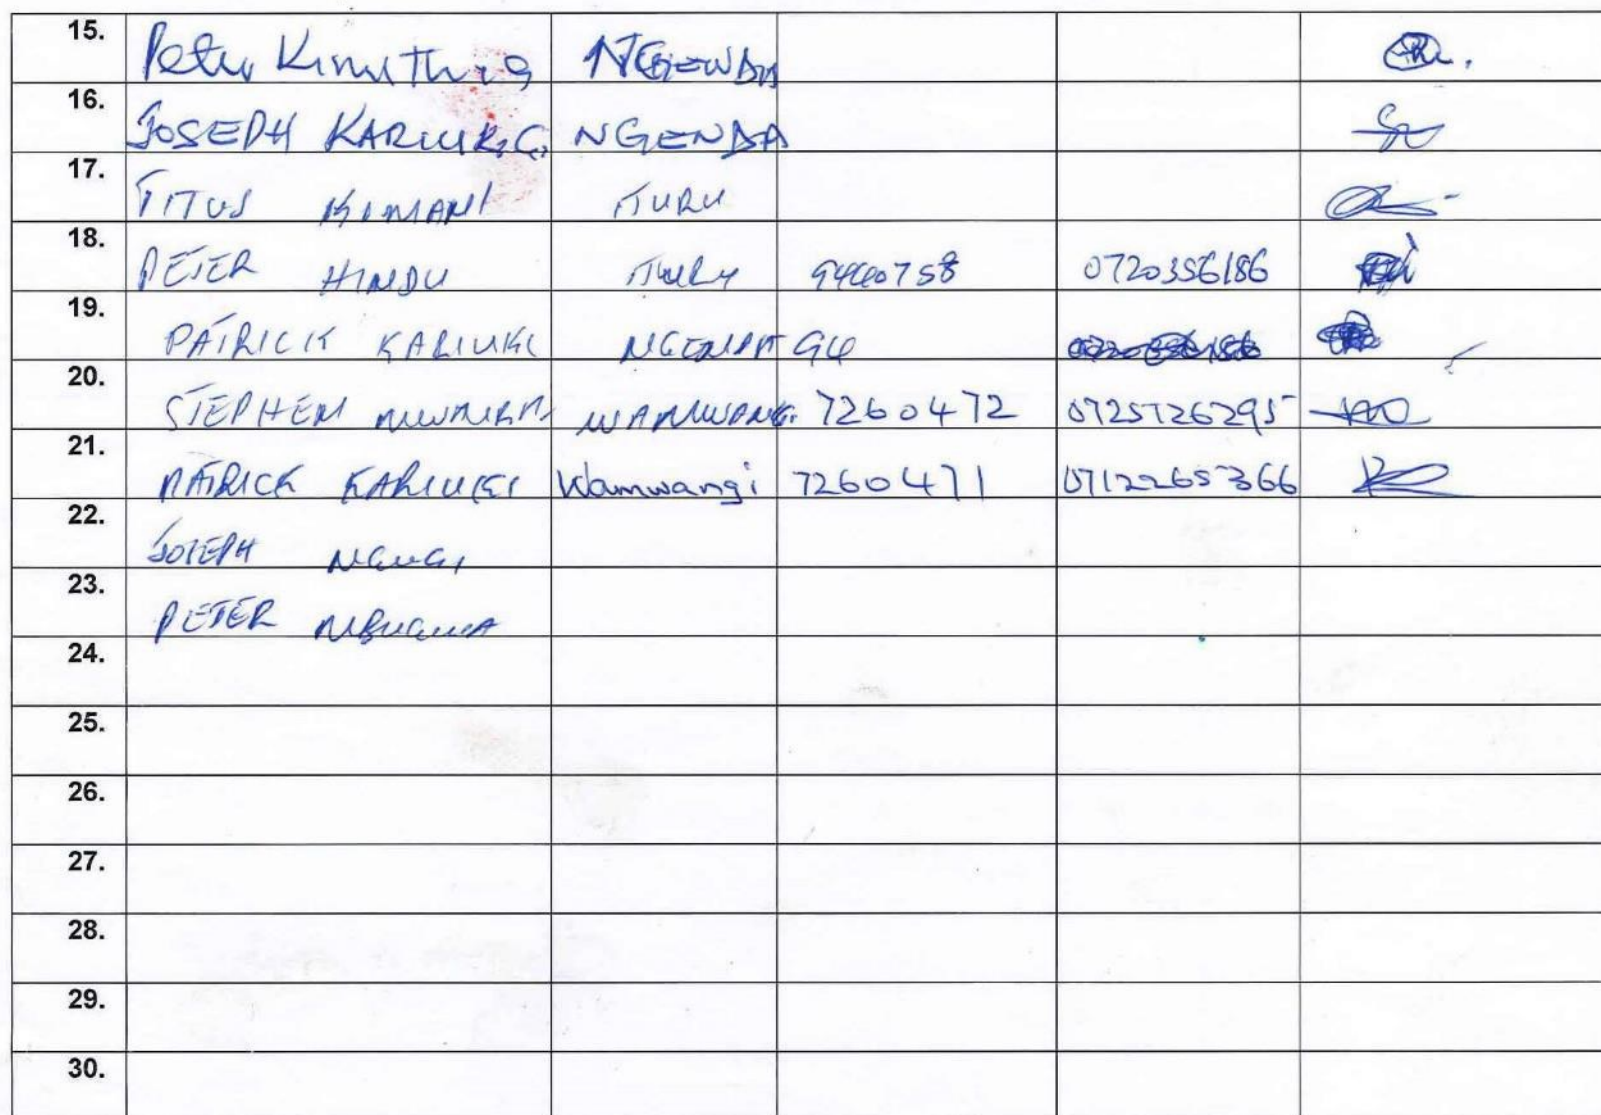 15. Peter Kinuthia NGENDA
16. JOSEPH KARIUKI G. NGENDA
17. TITUS KIMANI ITURU
18. PETER HINDU 0720356186
19. PATRICK KARIUKI NGENDA 94
20. STEPHEN WAMWANGI 7260472 0725726295
21. PATRICK KARIUKI Wamwangi 7260471
22. JOSEPH NGUGI
23. PETER MBUGUA
24.
25.
26.
27.
28.
29.
30.